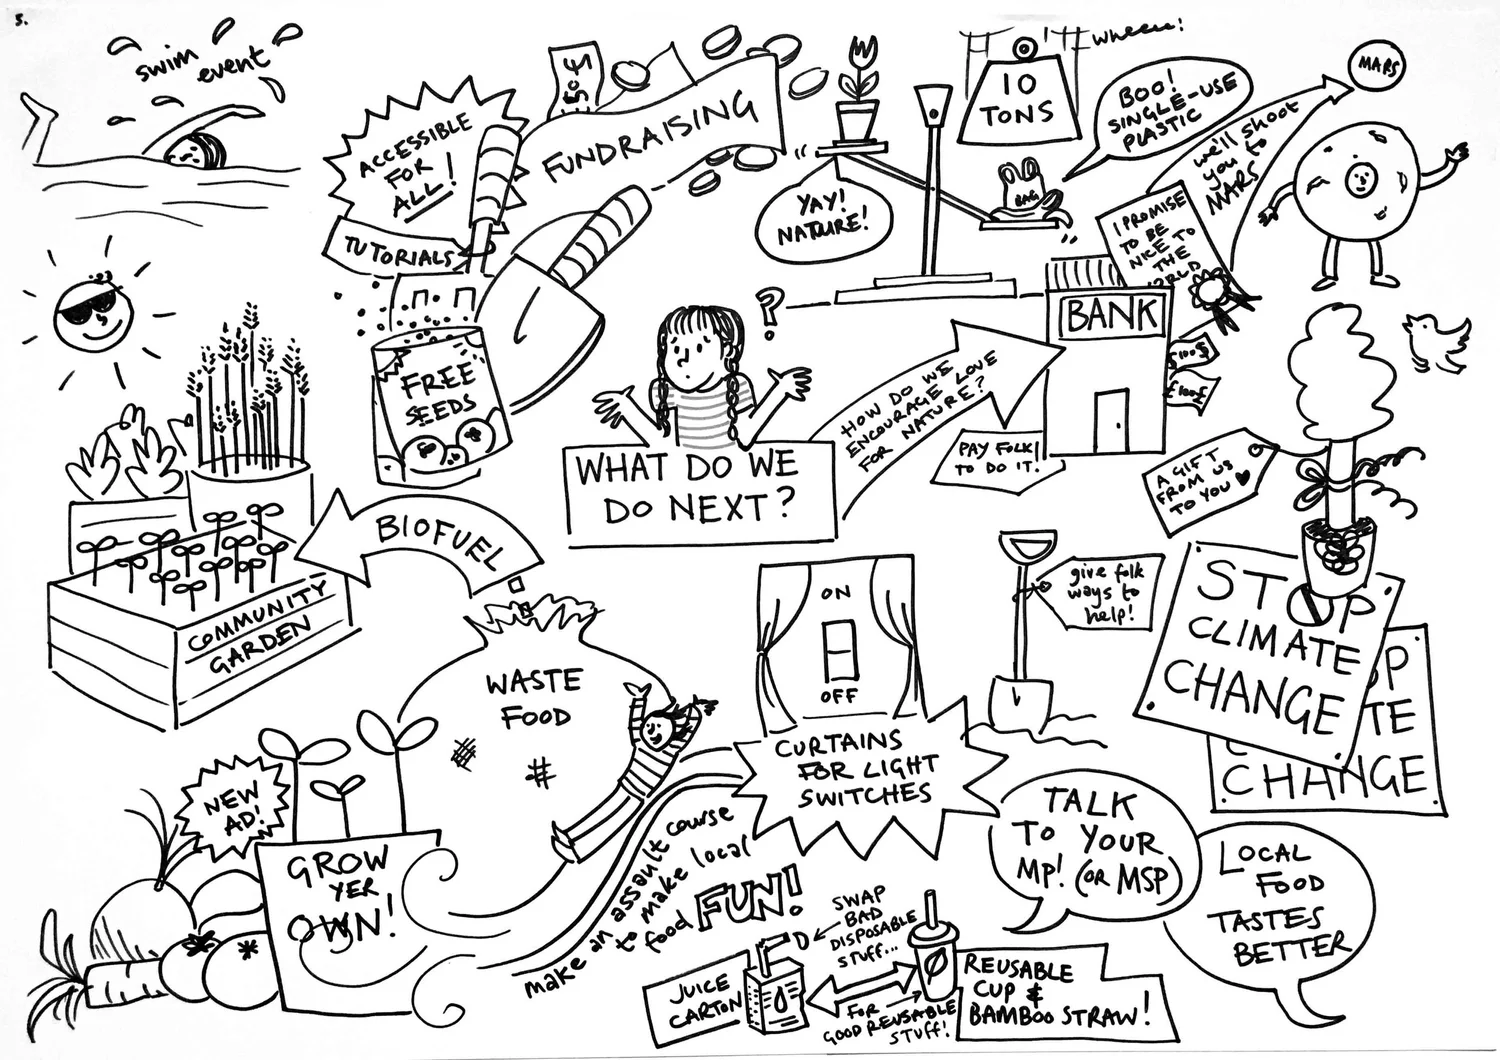 5.
swim
event
ACCESSIBLE
FOR
ALL!
TUTORIALS
FUNDRAISING
FREE
SEEDS
YAY!
NATURE!
10
TONS
wheeee!
BOO!
SINGLE-USE
PLASTIC
BAG
we'll shoot
you to
MARS
MARS
I PROMISE
TO BE
NICE TO
THE
BANK
$100$
£100£
?
WHAT DO WE
DO NEXT?
HOW DO WE
ENCOURAGE LOVE
FOR NATURE?
PAY FOLK
TO DO IT!
A GIFT
FROM US
TO YOU ♥
BIOFUEL
COMMUNITY
GARDEN
WASTE
FOOD
ON
OFF
CURTAINS
FOR LIGHT
SWITCHES
give folk
ways to
help!
STOP
CLIMATE
CHANGE
OP
TE
CHANGE
NEW
AD!
GROW
YER
OWN!
make an assault course
to make local
food FUN!
TALK
TO YOUR
MP! (OR MSP)
LOCAL
FOOD
TASTES
BETTER
SWAP
BAD
DISPOSABLE
STUFF...
JUICE
CARTON
FOR
GOOD REUSABLE
STUFF!
REUSABLE
CUP &
BAMBOO STRAW!